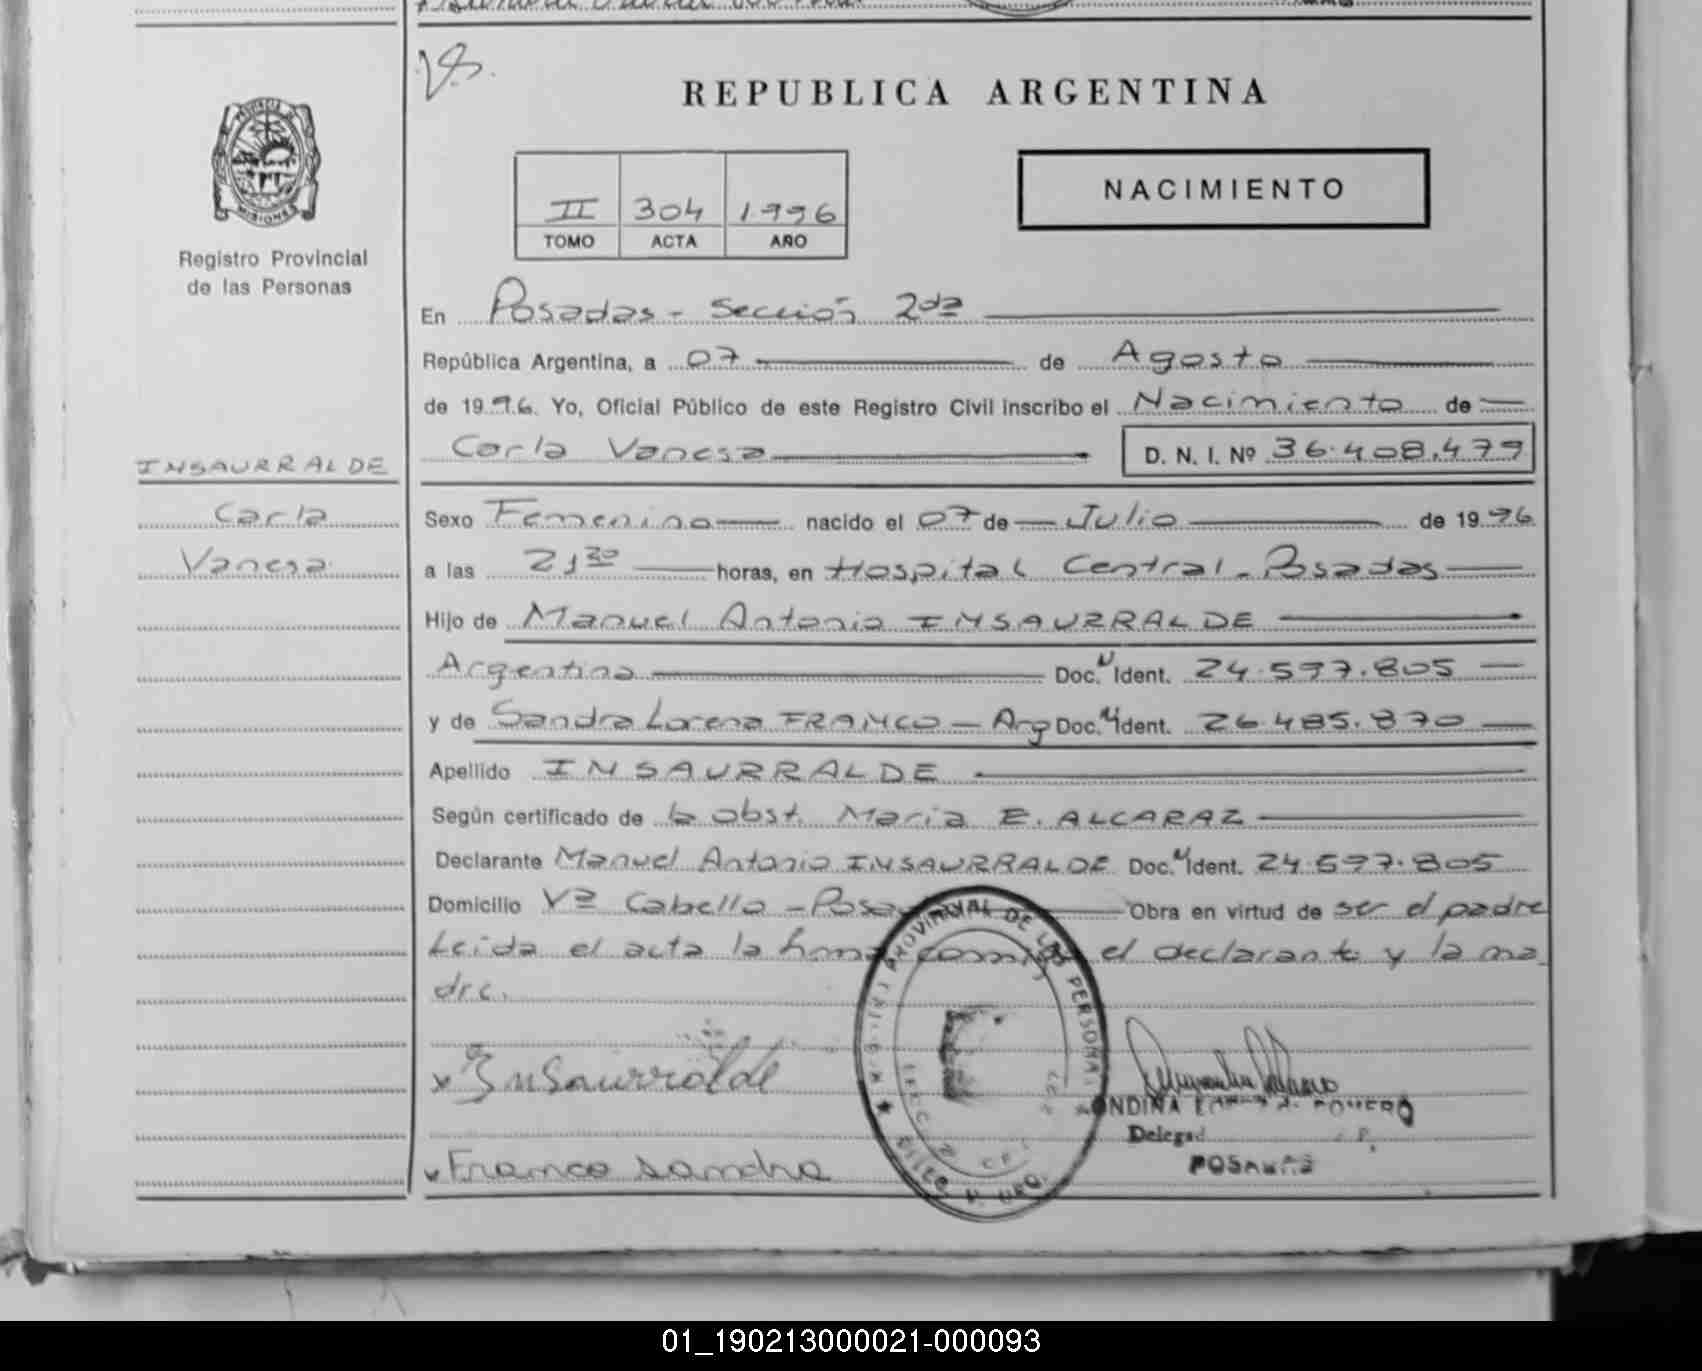 REPUBLICA ARGENTINA
PROVINCIA
MISIONES
Registro Provincial
de las Personas
NACIMIENTO
II 304 1996
TOMO ACTA AÑO
En Posadas - Sección 2da
República Argentina, a 07 de Agosto
de 1996. Yo, Oficial Público de este Registro Civil inscribo el Nacimiento de
Carla Vanesa D. N. I. Nº 36.408.479
INSAURRALDE
Carla
Vanesa
Sexo Femenino nacido el 07 de Julio de 1996
a las 21 30 horas, en Hospital Central - Posadas
Hijo de Manuel Antonio INSAURRALDE
Argentino Doc. N Ident. 24.597.805
y de Sandra Lorena FRANCO - Arg Doc. N Ident. 26.485.870
Apellido INSAURRALDE
Según certificado de la obst. Maria E. ALCARAZ
Declarante Manuel Antonio INSAURRALDE Doc. N Ident. 24.597.805
Domicilio Vª Cabello - Posa Obra en virtud de ser el padre
Leida el acta la conmigo el declarante y la ma-
dre.
x Insaurralde
x Franco Sandra
PROVINCIAL DE LAS PERSONAS
ROMERO
POSADAS
01_190213000021-000093